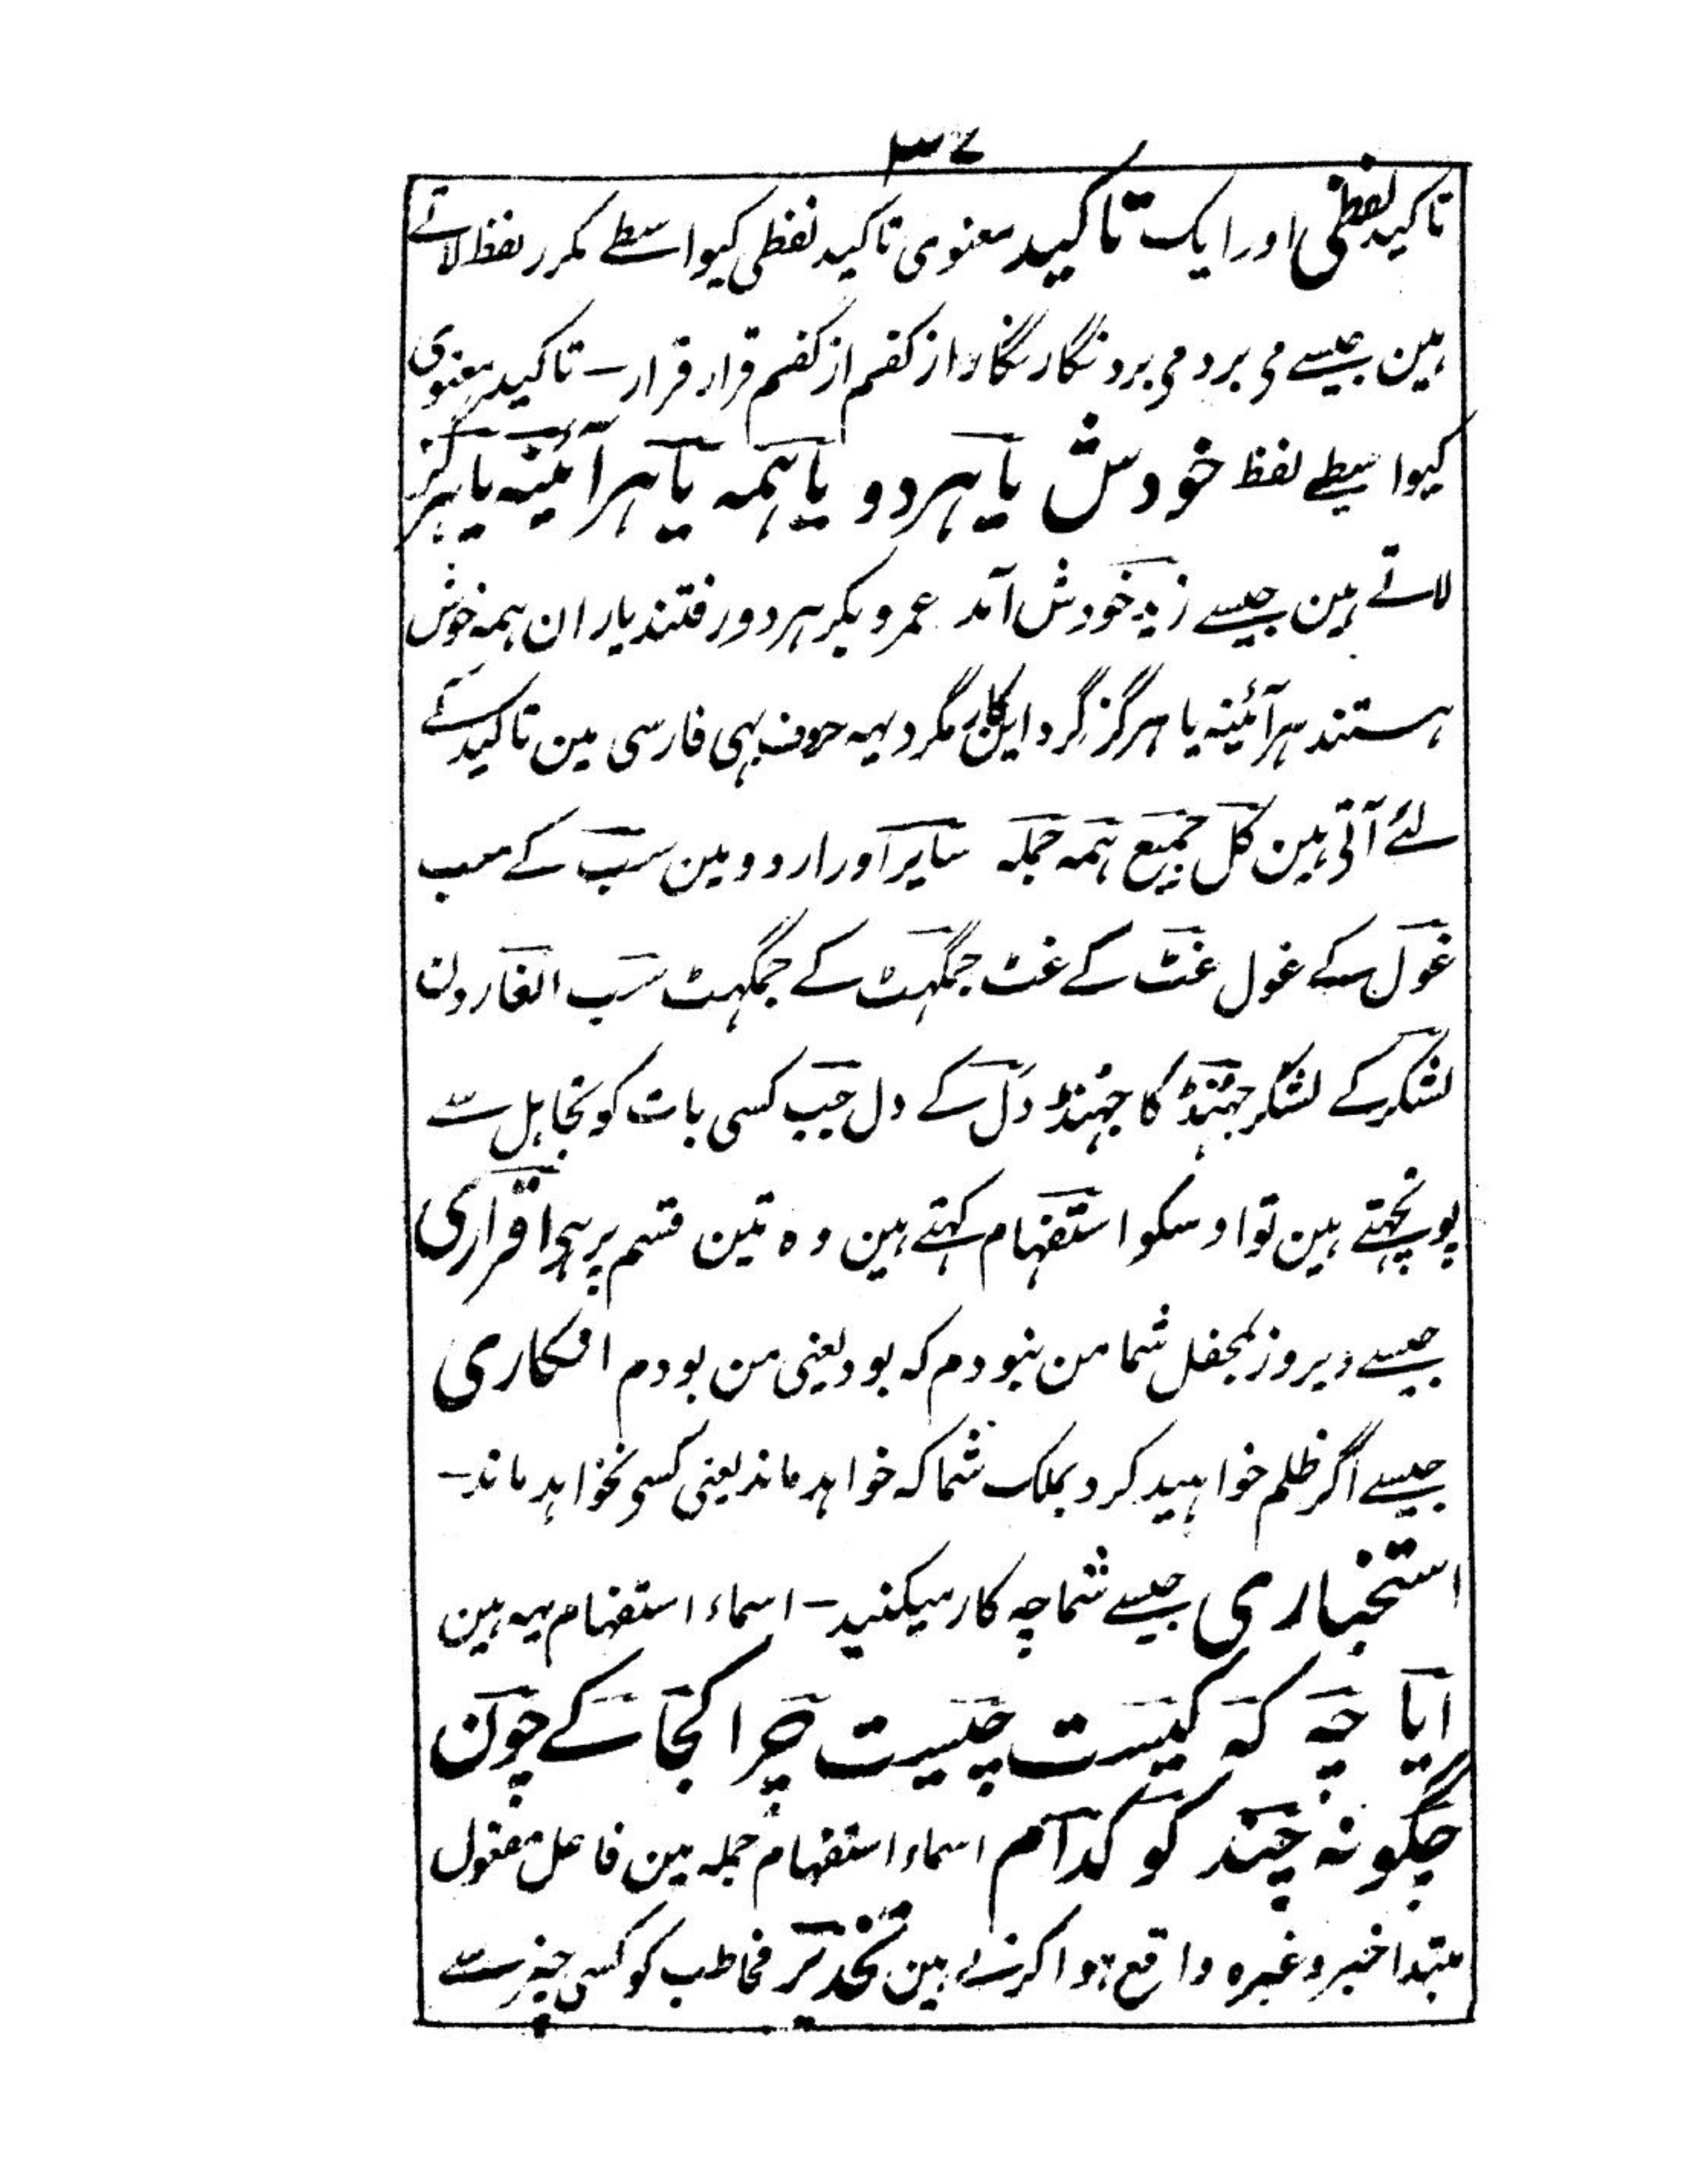 ۳۷
تاکید لفظی اور ایک تاکید معنوی تاکید لفظی کیواسطے مکرر لفظ لاتے
ہین جیسے می برد می برد نگار نگار از کفم از کفم قرار قرار ـ تاکید معنوی
کیواسطے لفظ خودش یا ہردو یا ہمہ یا ہرآئینہ یا ہرگز
لاتے ہین جیسے زید خودش آمد عمرو بکر ہردو رفتند یاران ہمہ خوش
ہستند ہرآئینہ یا ہرگز گرد اینکار مگرد یہہ حرف بہی فارسی مین تاکید کے
لئے آتی ہین کل جمیع ہمہ جملہ سایر اور اردو مین سب کے سب
غول کے غول غٹ کے غٹ جمگہٹ کے جمگہٹ سب الغارون
لشکر کے لشکر جہنڈ کا جہنڈ دل کے دل جب کسی بات کو تجاہل سے
پونچہتے ہین تو اوسکو استفہام کہتے ہین وہ تین قسم پر ہی اقراری
جیسے دیروز بمحفل شما من نبودم کہ بود یعنی من بودم انکاری
جیسے اگر ظلم خواہید کرد بملک شما کہ خواہد ماند یعنی کسی نخواہد ماند ـ
استخباری جیسے شما چہ کار میکنید ـ اسماء استفہام یہہ ہین
ایا چہ کہ کیست چیست چرا کجا کے چون
چگونہ چند کو کدام اسماء استفہام جملہ مین فاعل مفعول
مبتدا خبر وغیرہ واقع ہوا کرتے ہین تحذیر مخاطب کو کسی چیز سے